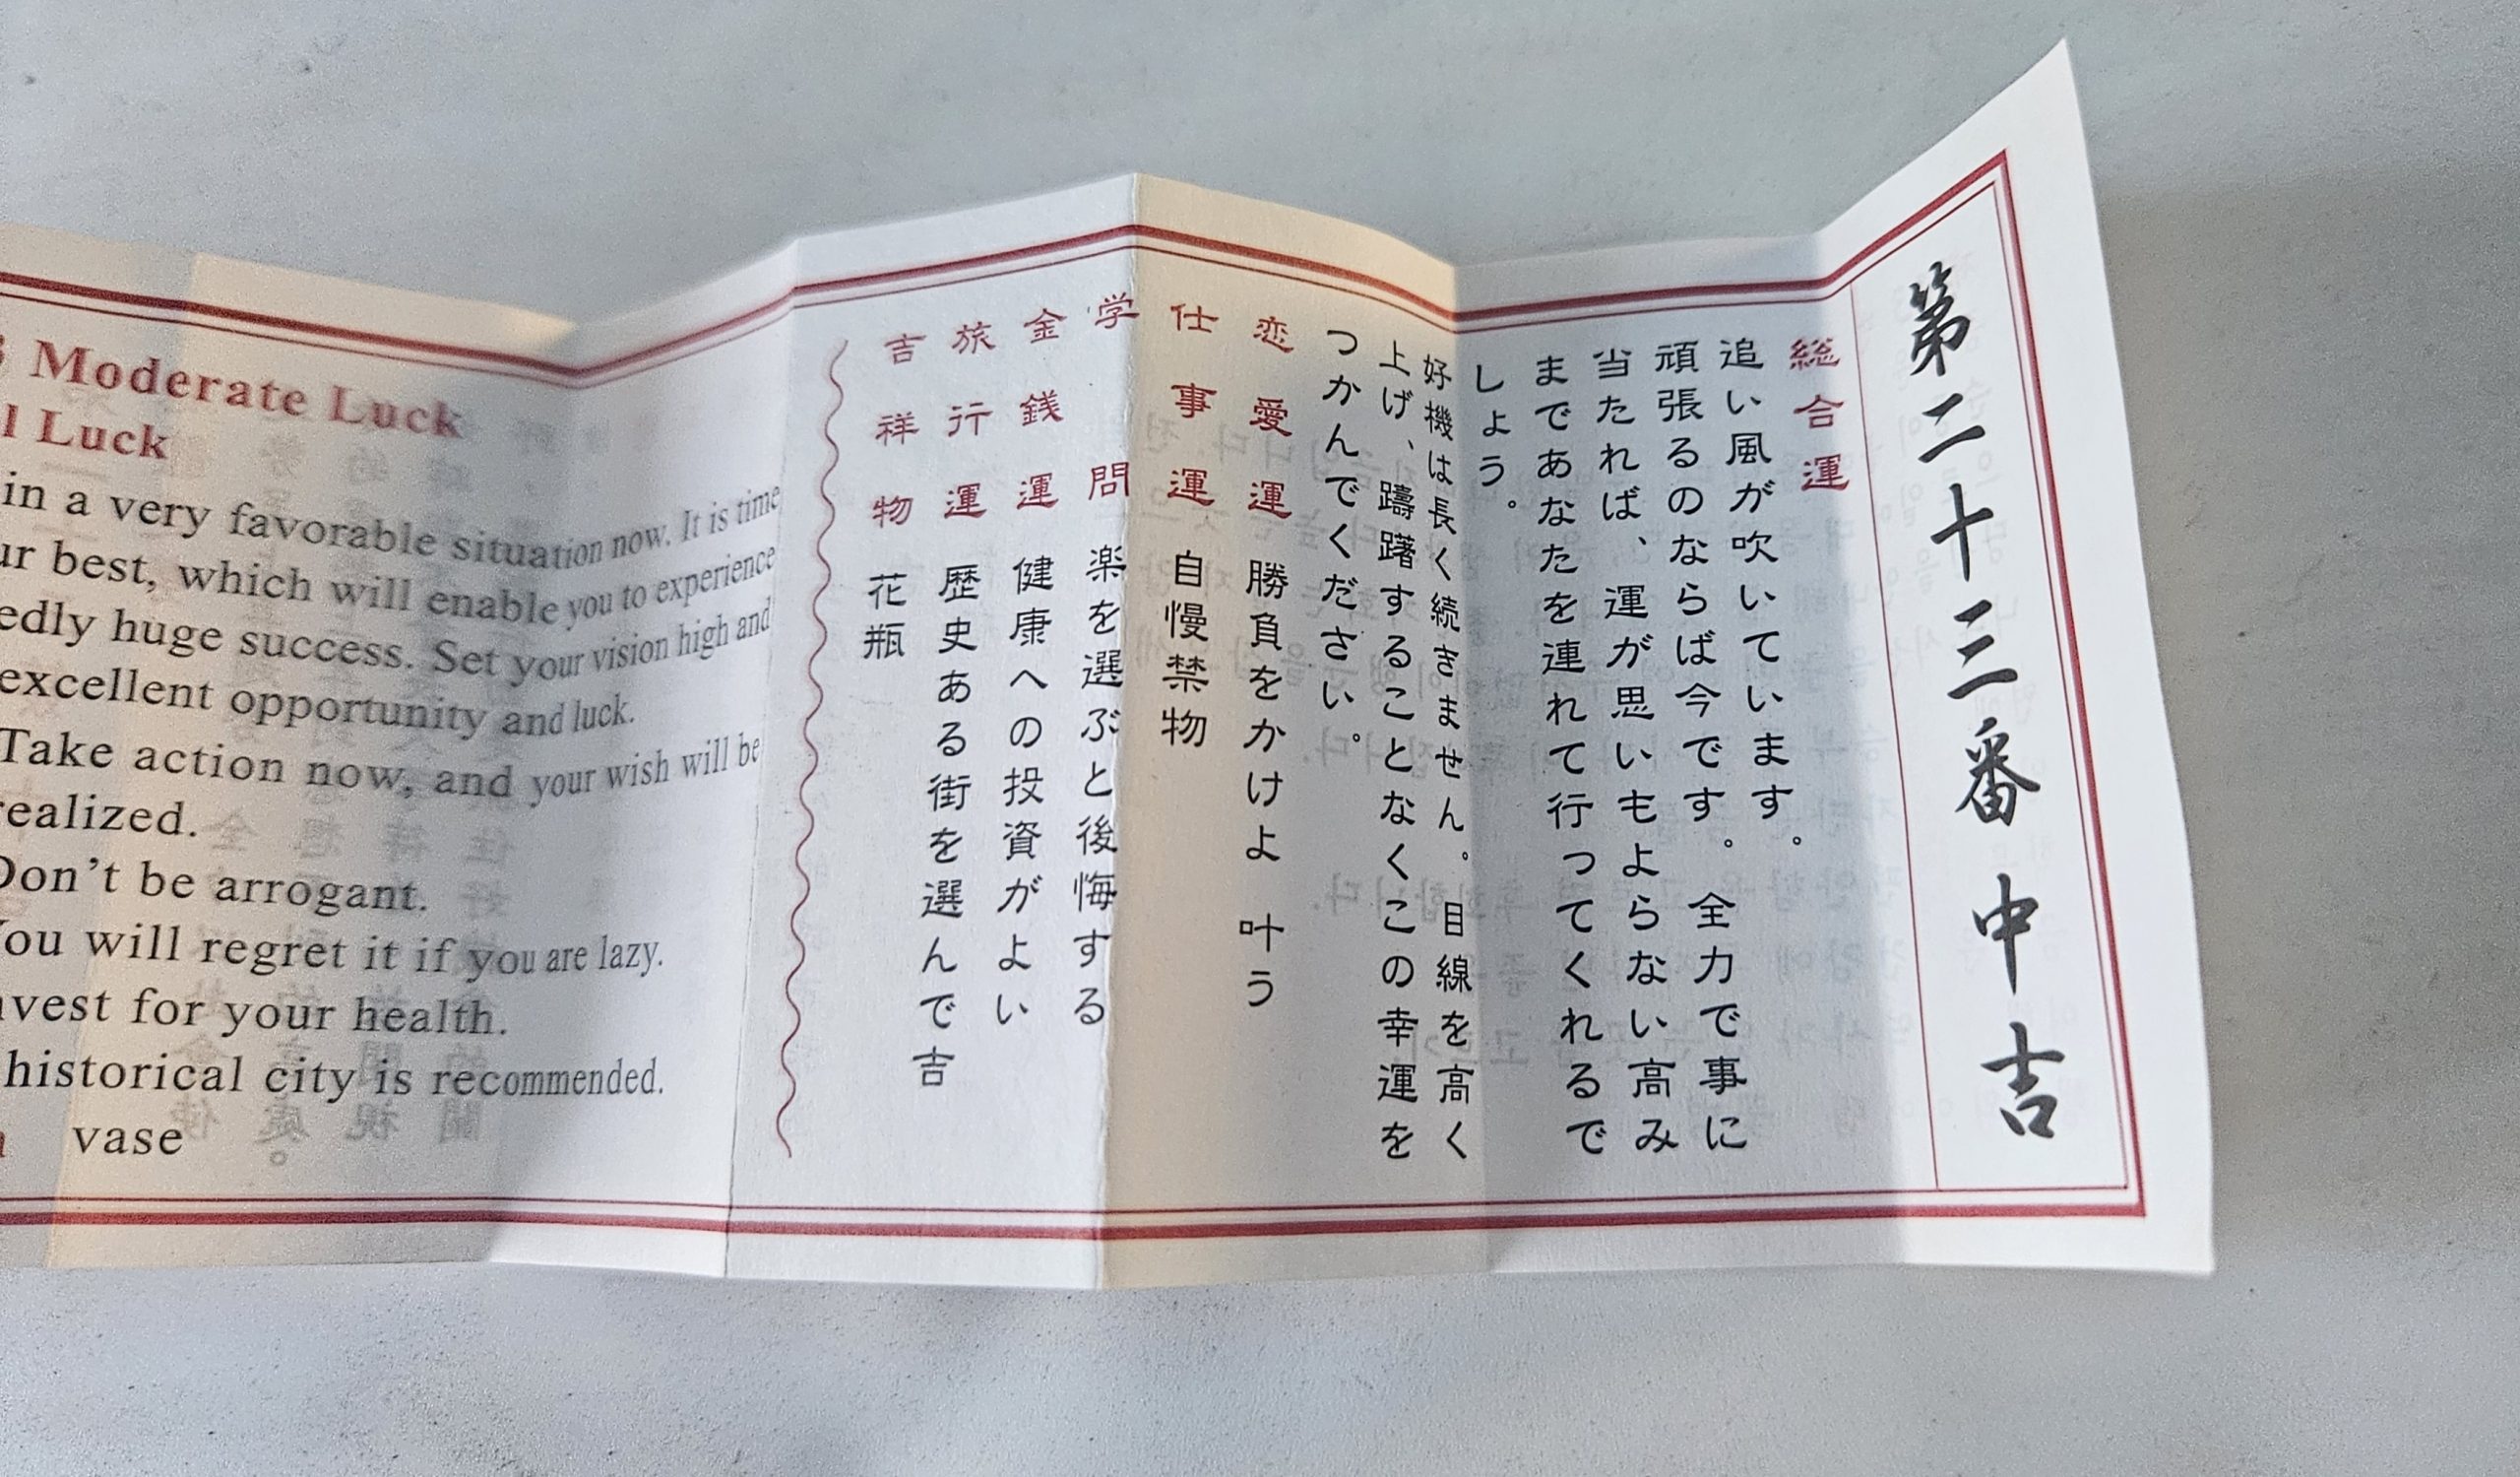 第二十三番中吉
総合運
追い風が吹いています。
頑張るのならば今です。全力で事に
当たれば、運が思いもよらない高み
まであなたを連れて行ってくれるで
しょう。
好機は長く続きません。目線を高く
上げ、躊躇することなくこの幸運を
つかんでください。
恋愛運 勝負をかけよ 叶う
仕事運 自慢禁物
学問 楽を選ぶと後悔する
金銭運 健康への投資がよい
旅行運 歴史ある街を選んで吉
吉祥物 花瓶
Moderate Luck
Luck
in a very favorable situation now. It is time
best, which will enable you to experience
huge success. Set your vision high and
excellent opportunity and luck.
Take action now, and your wish will be
realized.
Don't be arrogant.
You will regret it if you are lazy.
for your health.
historical city is recommended.
vase